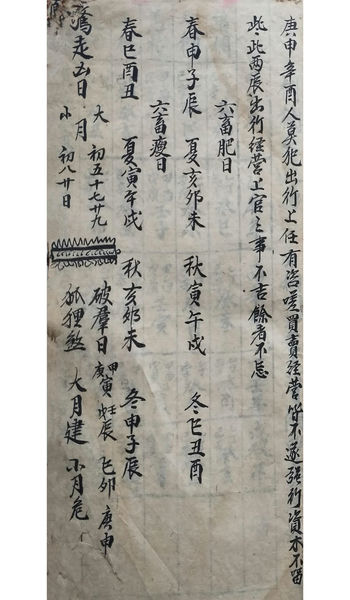 庚申辛酉人莫犯出行上任有咨嗟買賣經營皆不遂强行資本不留
此此丙辰出行經營上官之事不吉餘者不忌
六畜肥日
春申子辰 夏亥卯未 秋寅午戌 冬巳丑酉
六畜瘦日
春巳酉丑 夏寅午戌 秋亥卯未 冬申子辰
大 初五十七廿九 破羣日 甲庚寅 壬戊辰 己卯 庚申
瀉走凶日 月
小 初八廿日 狐狸煞 大月建 小月危